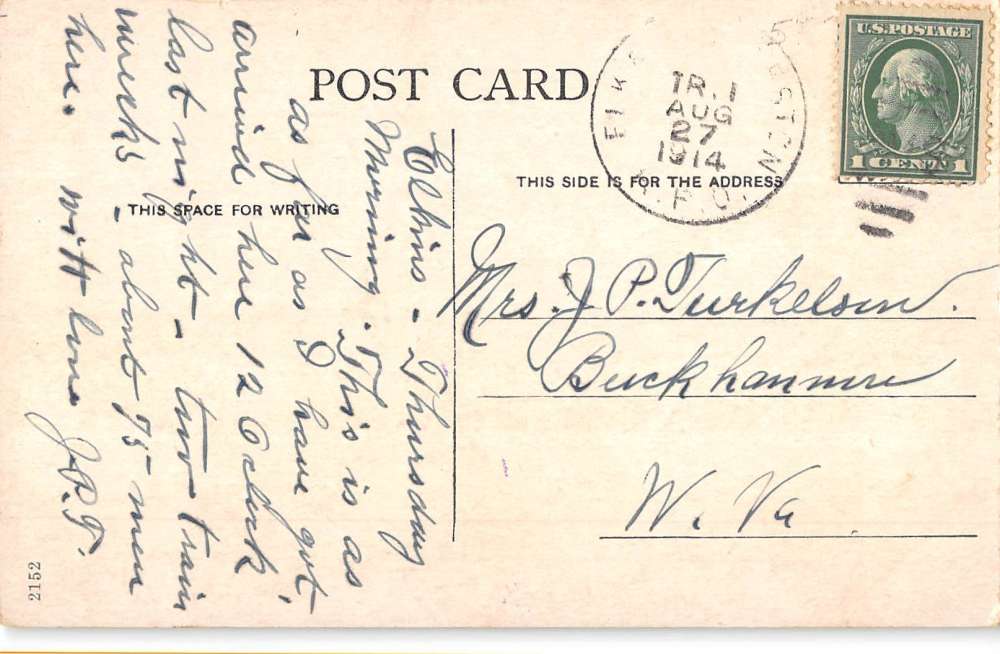 POST CARD
THIS SPACE FOR WRITING
THIS SIDE IS FOR THE ADDRESS
U.S. POSTAGE
1 CENT 1
TR. 1
AUG
27
1914
R.P.O.
Elkins - Thursday
Morning. This is as
as far as I have got.
arrived here 12 Oclock
last night - two train
wrecks - about 75 men
here. with love J.P.T.
Mrs. J. P. Turkelson.
Buckhannon
W. Va.
2152